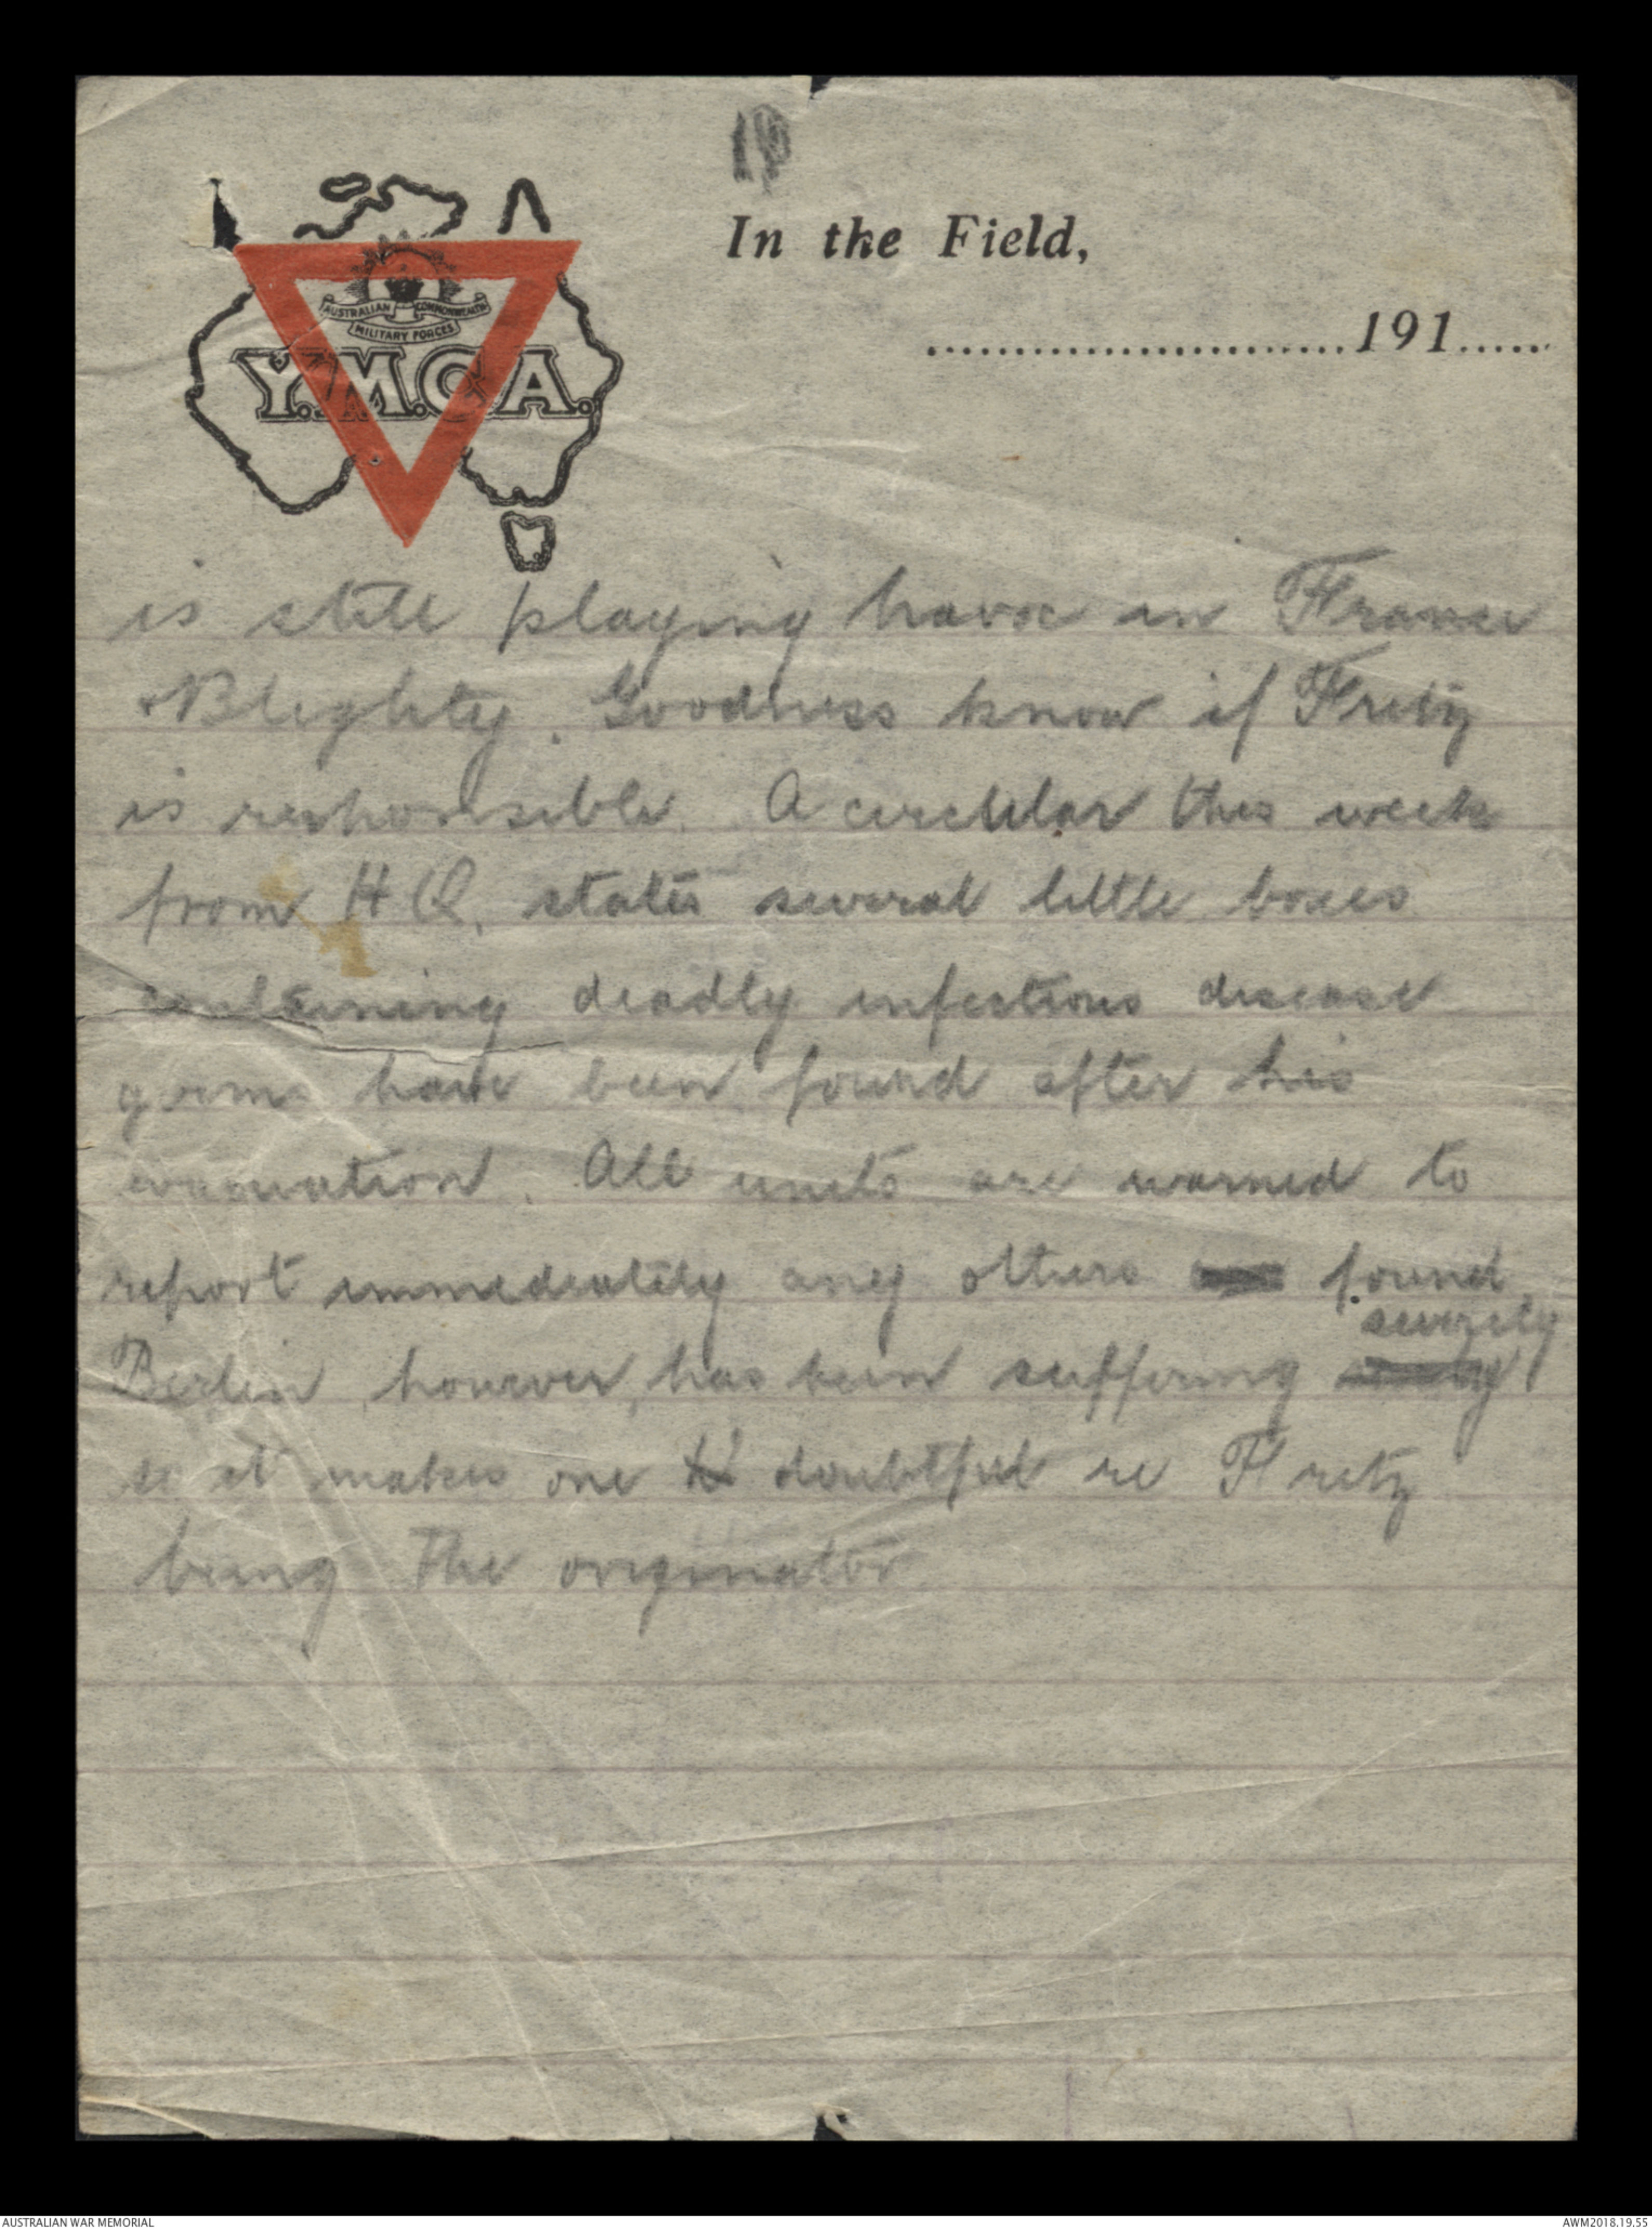 In the Field,
AUSTRALIAN COMMONWEALTH
MILITARY FORCES
Y.M.C.A.
.........................191......
is still playing havoc in France
& Blighty. Goodness know if Fritz
is responsible. A circular this week
from H Q. states several little boxes
containing deadly infectious disease
germs have been found after his
evacuation. All units are warned to
report immediately any others found.
severely
Berlin however, has been suffering
so it makes one doubtful re Fritz
being the originator
AUSTRALIAN WAR MEMORIAL
AWM2018.19.55